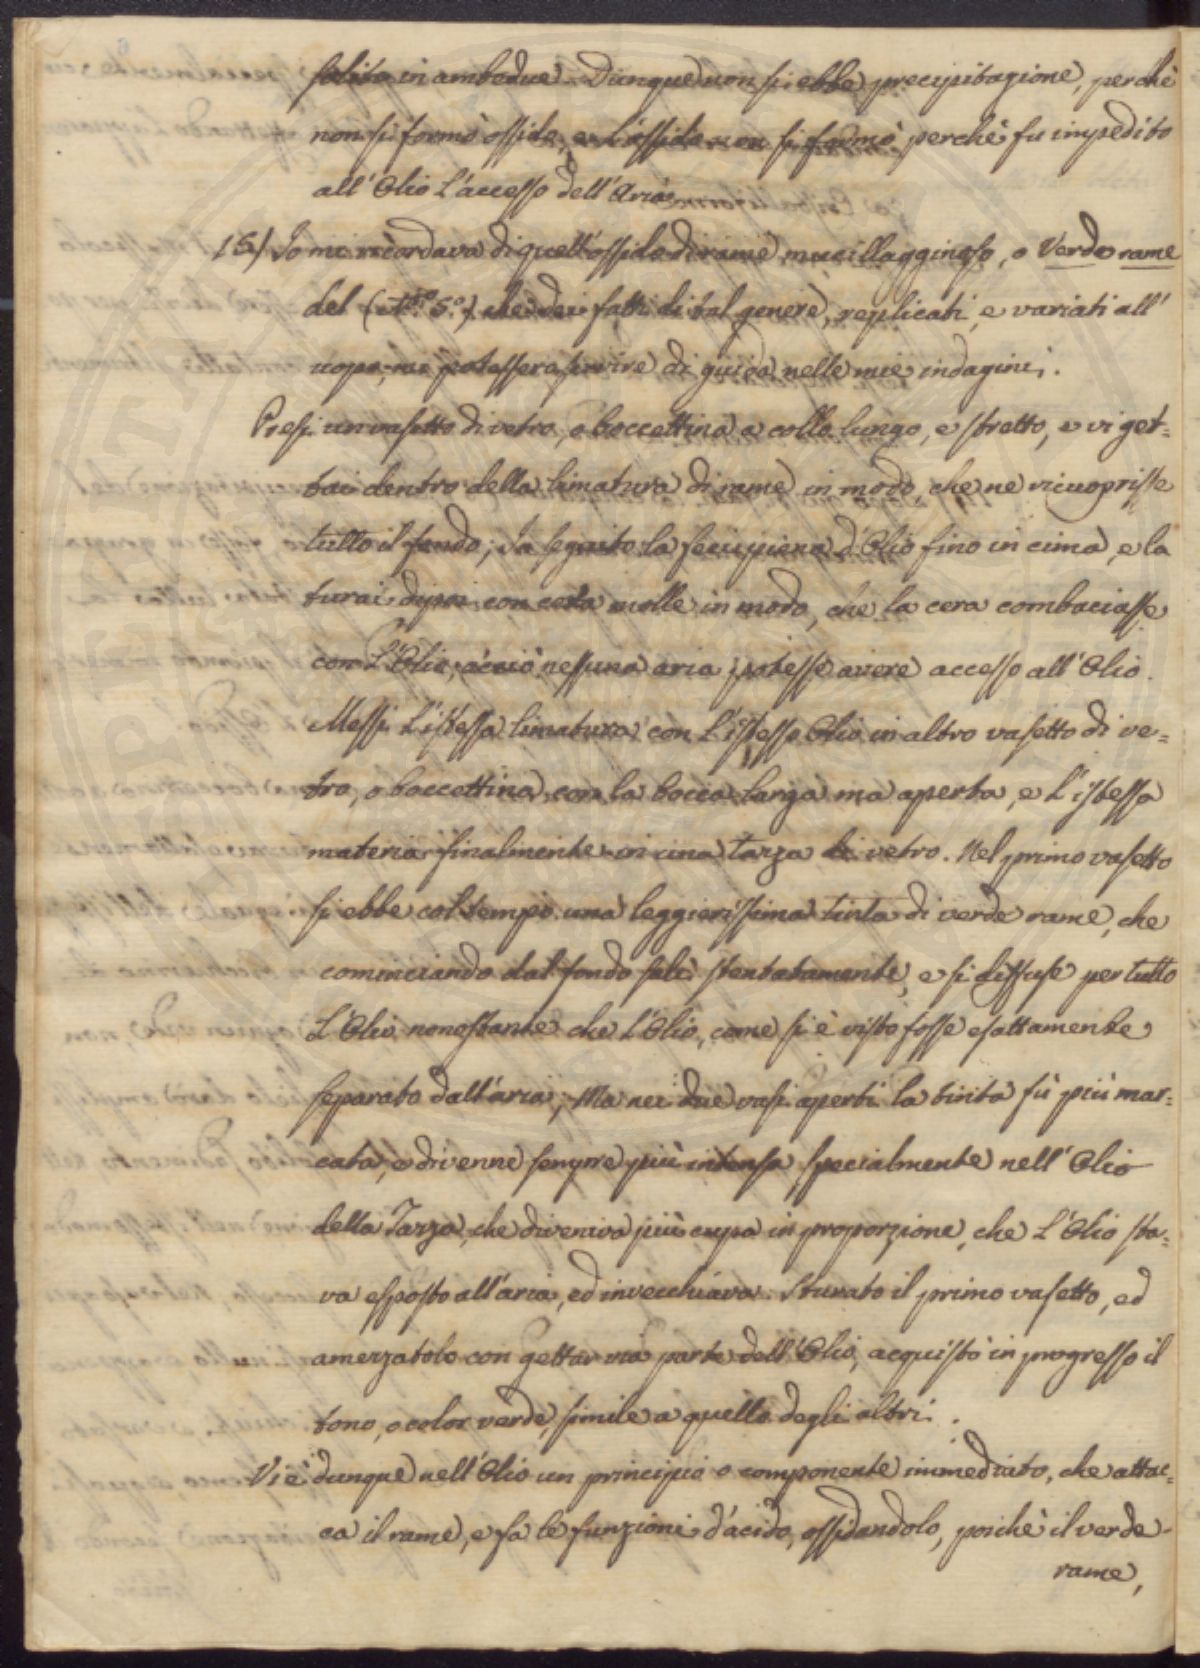 solito in ambedue. Dunque non si ebbe precipitazione, perchè
non si formò osside, e l'osside non si formò perchè fu impedito
all'Olio l'accesso dell'Aria
15) Io mi ricordava di quell'osside di rame mucillagginoso, o Verde rame
del (N.º 5.º) che dei fatti di tal genere, replicati, e variati all'
uopo, mi potessero servire di guida nelle mie indagini.
Presi un vasetto di vetro, o boccettina a collo lungo, e stretto, e vi get=
tai dentro della limatura di rame in modo, che ne ricuoprisse
tutto il fondo; In seguito la feci piena d'Olio fino in cima, e la
turai dipoi con cera molle in modo, che la cera combaciasse
con l'Olio, acciò nessuna aria potesse avere accesso all'Olio.
Messi l'istessa limatura con l'istesso Olio in altro vasetto di ve=
tro, o boccettina, con la bocca larga ma aperta, e l'istessa
materia finalmente in una tazza di vetro. Nel primo vasetto
si ebbe col tempo una leggierissima tinta di verde rame, che
cominciando dal fondo salì stentatamente, e si diffuse per tutto
l'Olio nonostante che l'Olio, come si è visto fosse esattamente
separato dall'aria; Ma nei due vasi aperti la tinta fù più mar=
cata, e divenne sempre più intensa specialmente nell'Olio
della Tazza, che diveniva più cupa in proporzione, che l'Olio sta=
va esposto all'aria, ed invecchiava. Sturato il primo vasetto, ed
amezzatolo con gettar via parte dell'Olio, acquistò in progresso il
tono, o color verde, simile a quello degli altri.
Vi è dunque nell'Olio un principio o componente immediato, che attac=
ca il rame, e fa le funzioni d'acido, ossidandolo, poichè il verde
rame,